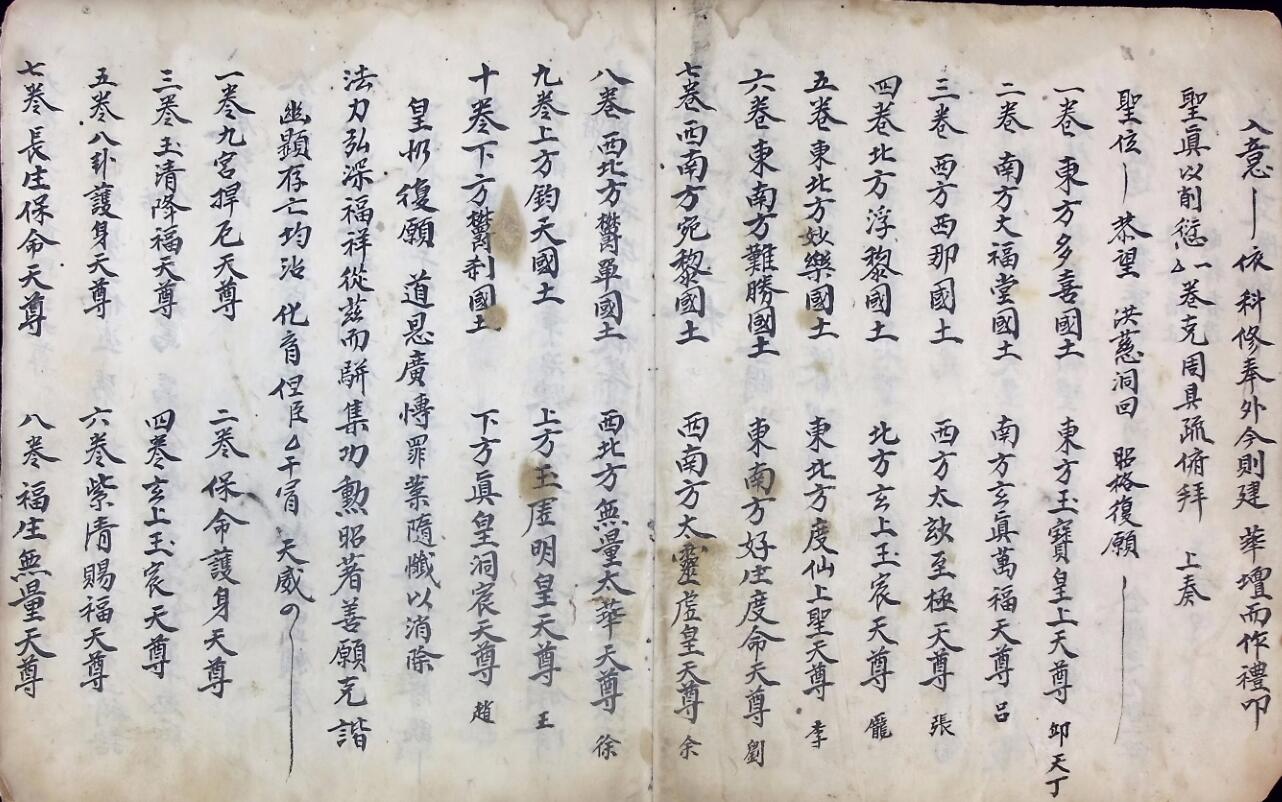 入意 依 科修奉外今則建 華壇而作禮叩
聖真以削愆厶一卷克周具疏俯拜 上奏
聖位 恭望 洪慈洞回 昭格復願
一卷 東方多喜國土 東方玉寶皇上天尊 卯天丁
二卷 南方大福堂國土 南方玄真萬福天尊 呂
三卷 西方西那國土 西方太妙至極天尊 張
四卷北方浮黎國土 北方玄上玉宸天尊 龐
五卷東北方妙樂國土 東北方度仙上聖天尊 李
六卷東南方難勝國土 東南方好生度命天尊 劉
七卷西南方宛黎國土 西南方太靈虛皇天尊 余
八卷西北方欝單國土 西北方無量太華天尊 徐
九卷上方鈞天國土 上方玉虛明皇天尊 王
十卷下方欝刹國土 下方真皇洞宸天尊 趙
皇仍復願 道恩廣愽罪業隨懺以消除
法力弘深福祥從茲而駢集功勲昭著善願克諧
幽顯存亡均沾 化育但臣厶干冒 天威
一卷九宮捍厄天尊 二卷保命護身天尊
三卷玉清降福天尊 四卷玄上玉宸天尊
五卷八卦護身天尊 六卷紫清賜福天尊
七卷長生保命天尊 八卷福生無量天尊